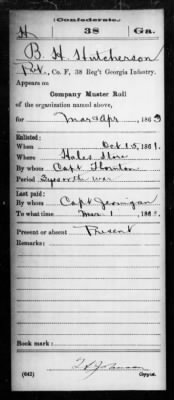 (Confederate.)
H 38 Ga.
B. H. Hutcherson
Pvt., Co. F, 38 Reg't Georgia Infantry.
Appears on
Company Muster Roll
of the organization named above,
for Mar & Apr, 1863
Enlisted:
When Oct 15, 1861.
Where Hales Store
By whom Capt Thornton
Period 3 years or the war
Last paid:
By whom Capt Jernigan
To what time Mar 1, 1863.
Present or absent Present
Remarks:
Book mark:
(642) Copyist.